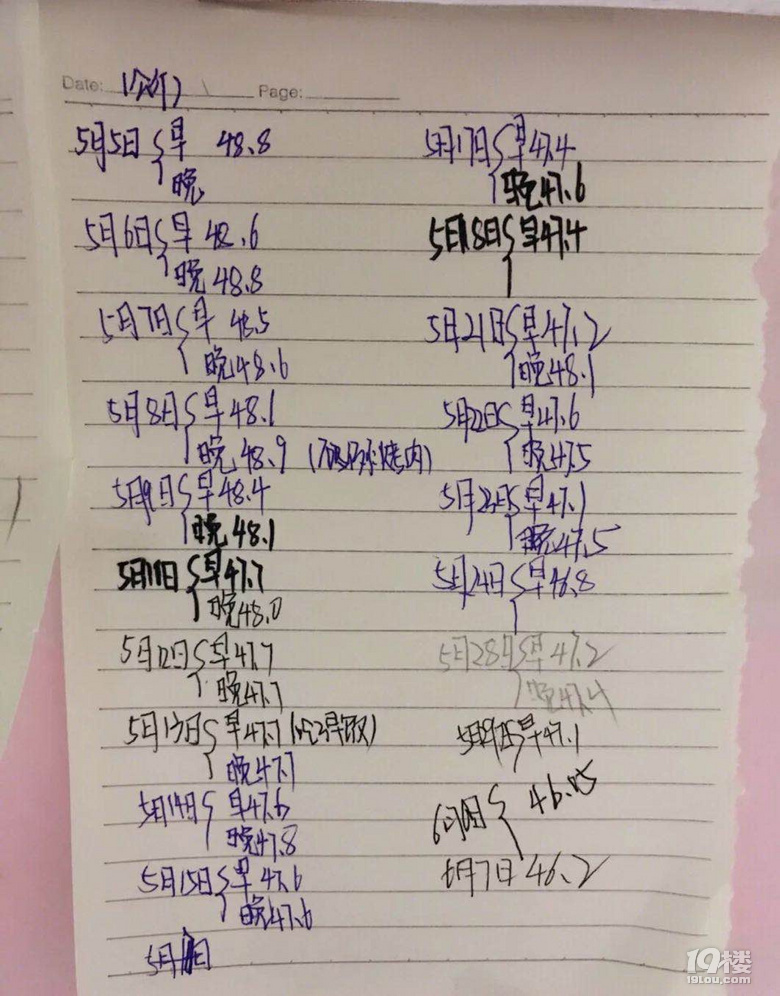 Date: (公斤) Page:
5月5日 早 48.8
晚
5月6日 早 48.6
晚 48.8
5月7日 早 48.5
晚48.6
5月8日 早48.1
晚48.9 (烤肉)
5月9日 早48.4
晚48.1
5月11日 早47.7
晚48.0
5月12日 早47.7
晚47.7
5月13日 早47.7(吃了早饭)
晚47.7
5月14日 早47.6
晚47.8
5月15日 早47.6
晚47.6
5月 日
5月17日 早47.4
晚47.6
5月18日 早47.4
5月21日 早47.2
晚48.1
5月22日 早47.6
晚47.5
5月23日 早47.1
晚47.5
5月24日 早46.8
5月28日 早47.2
晚47.4
5月29日 早47.1
46.05
6月7日 46.2
19楼
19lou.com